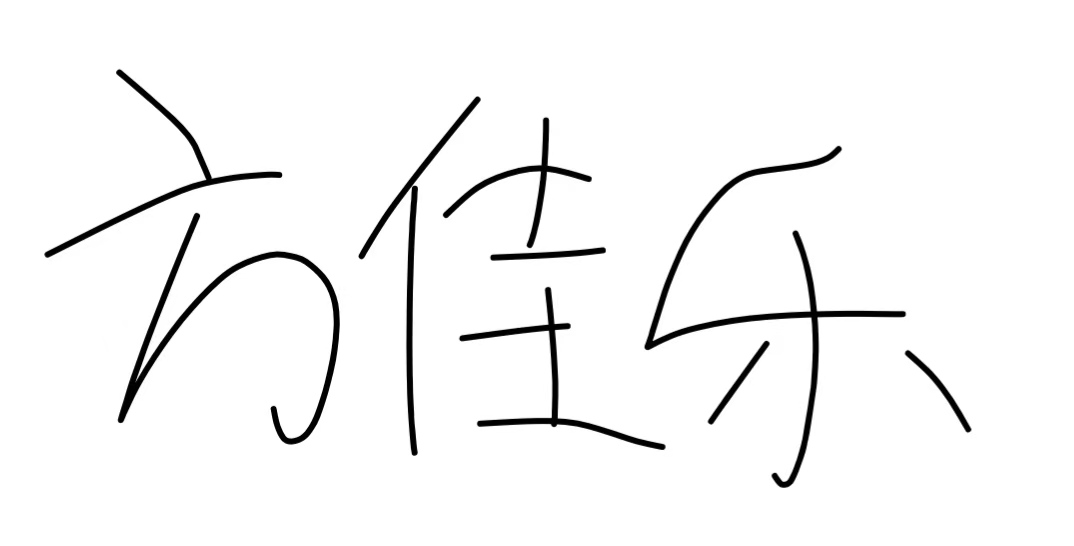 方佳乐